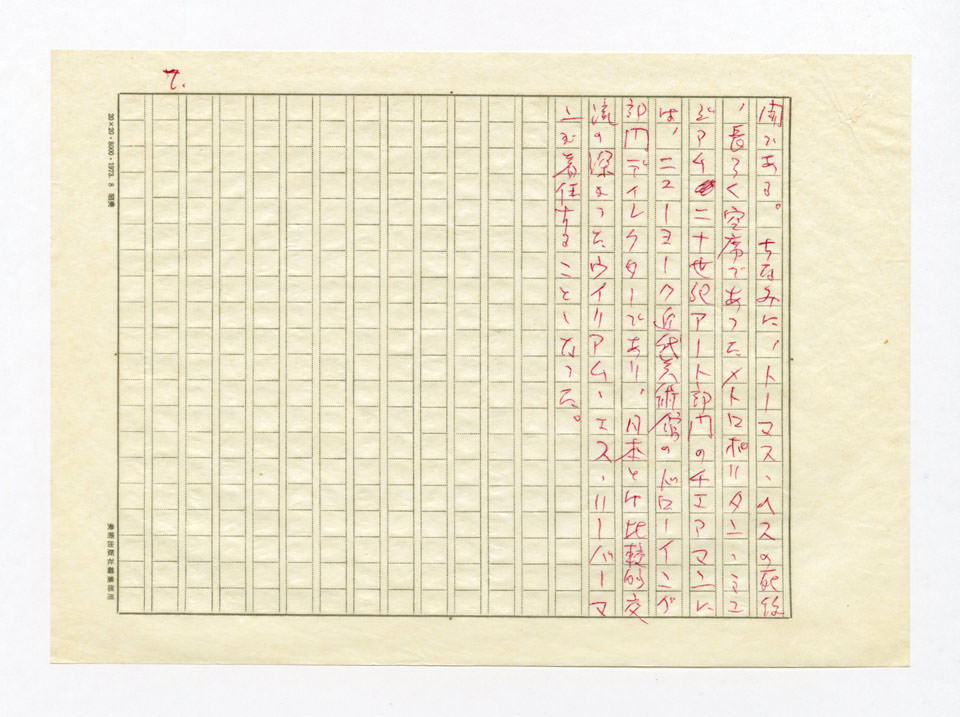 7.
間である。 ちなみに、トーマス、ヘスの死後
、長らく空席であったメトロポリタン、ミュ
ゼアム 二十世紀アート部門のチェアマンに
は、ニューヨーク近代美術館のドローイング
部門ディレクターであり、日本とは比較的交
流の深かったウイリアム、エス、リーバーマ
ンが着任することゝなった。
20×20・8000・1973. 8
美術出版社編集部用